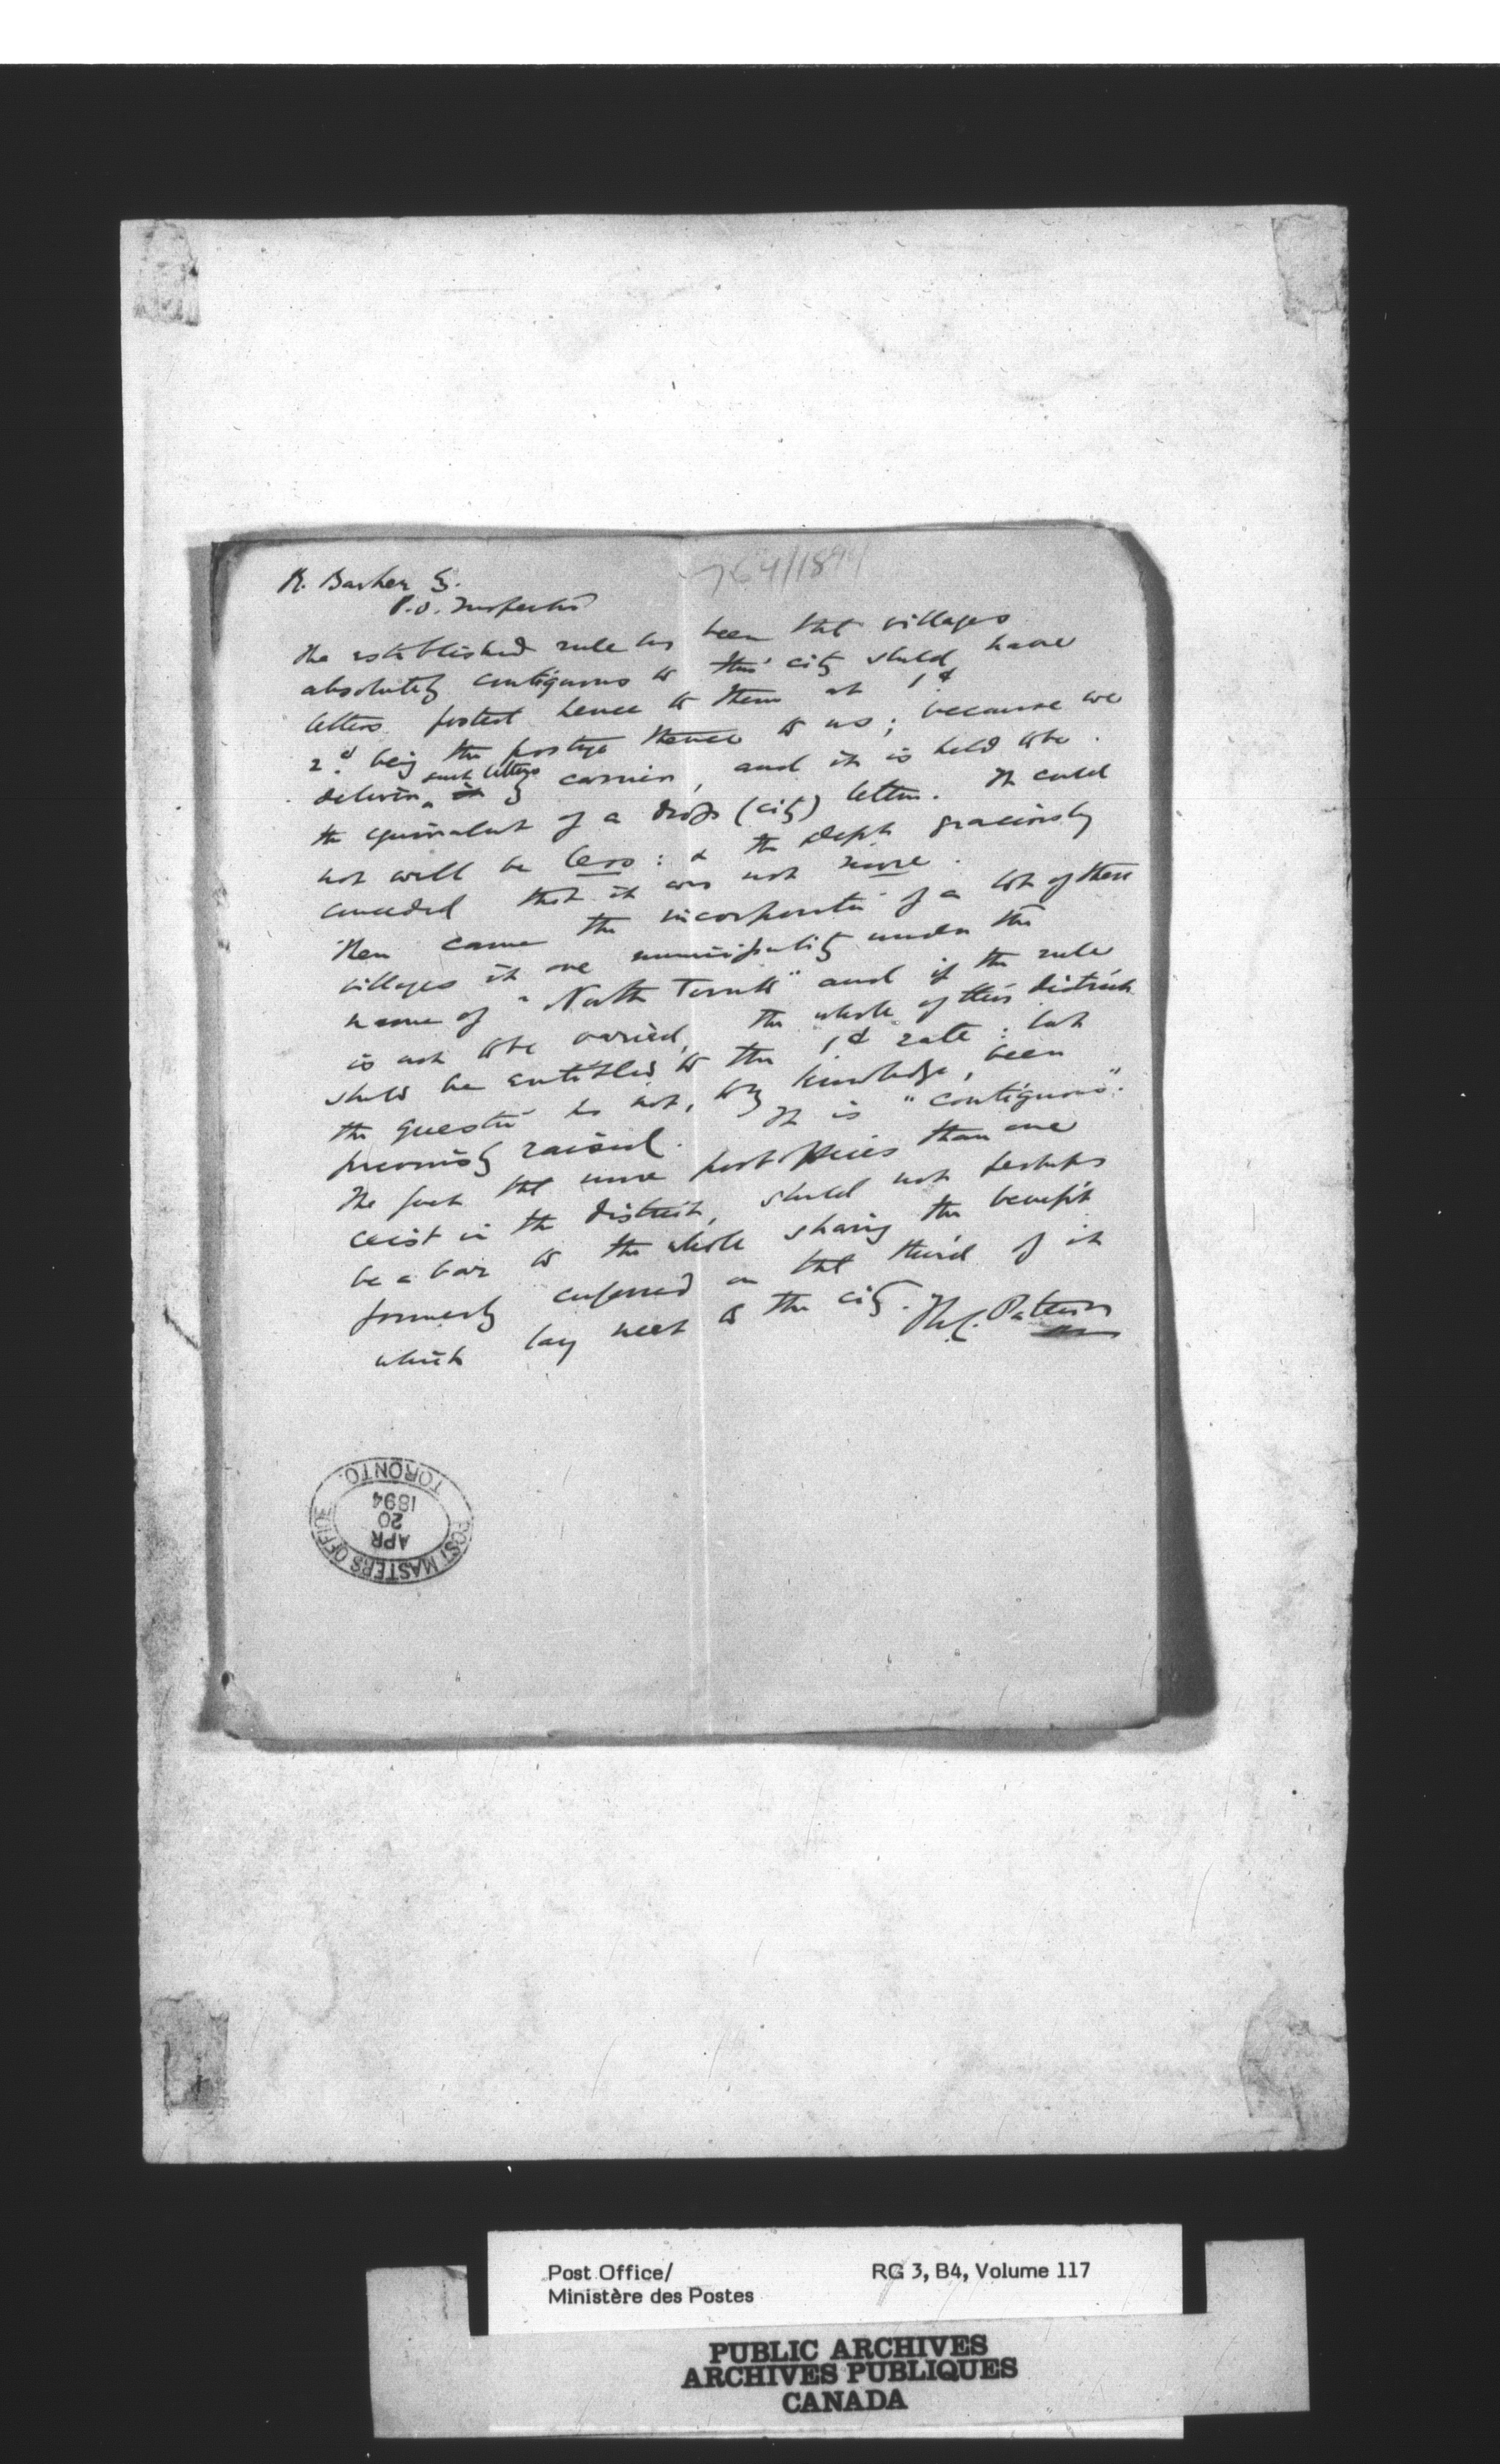 764/1894
M. Barker Esq.
P.O. Inspector
The established rule has been that villages
absolutely contiguous to this city should have
letters posted hence to them at 1d
2d being the postage thence to us; because we
deliver such letters by carrier, and it is held to be
the equivalent of a drop (city) letter. It could
not well be less: & the Dept graciously
conceded that it was not more.
Then came the incorporation of a lot of these
villages in one municipality under the
name of "North Toronto" and if the rule
is not to be varied, the whole of this district
should be entitled to the 1d rate: but
the question has not, to my knowledge, been
previously raised. It is "contiguous".
The fact that more post offices than one
exist in the district, should not perhaps
be a bar to the whole sharing the benefit
formerly conferred on the third of it
which lay next to the city. T.C. Patteson
POST MASTERS OFFICE
APR
20
1894
TORONTO.
Post Office/
Ministère des Postes
RG 3, B4, Volume 117
PUBLIC ARCHIVES
ARCHIVES PUBLIQUES
CANADA